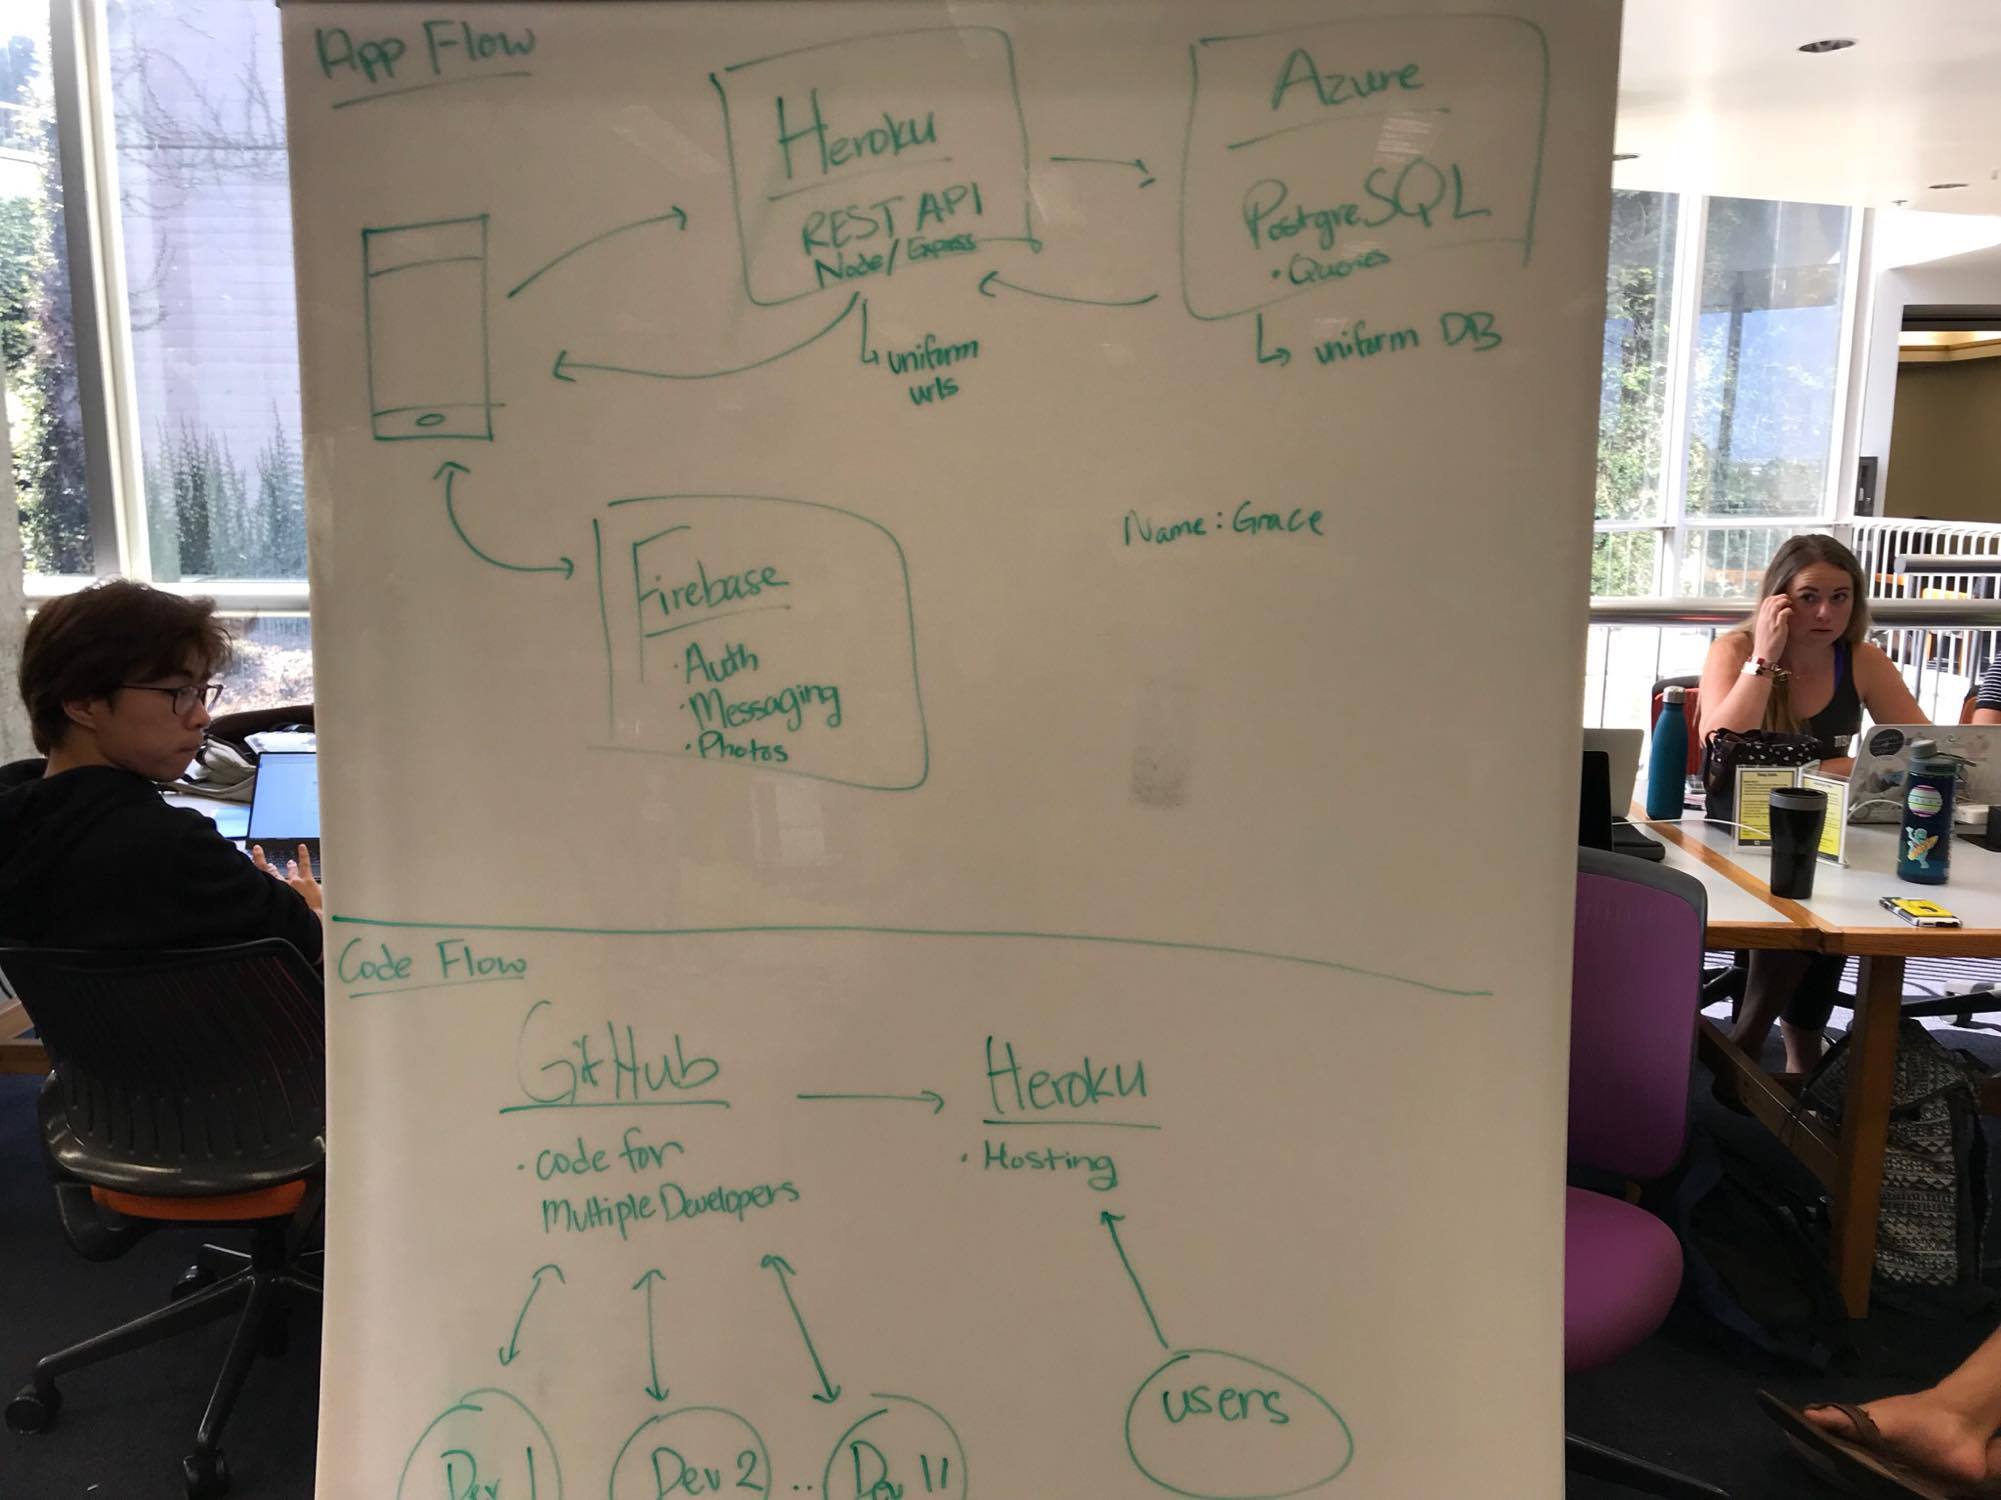 App Flow
Heroku
REST API
Node/Express
uniform
urls
Azure
PostgreSQL
• Queries
uniform DB
Firebase
• Auth
• Messaging
• Photos
Name: Grace
Code Flow
GitHub
• code for
Multiple Developers
Heroku
• Hosting
Dev 1
Dev 2
..
Dev 11
users